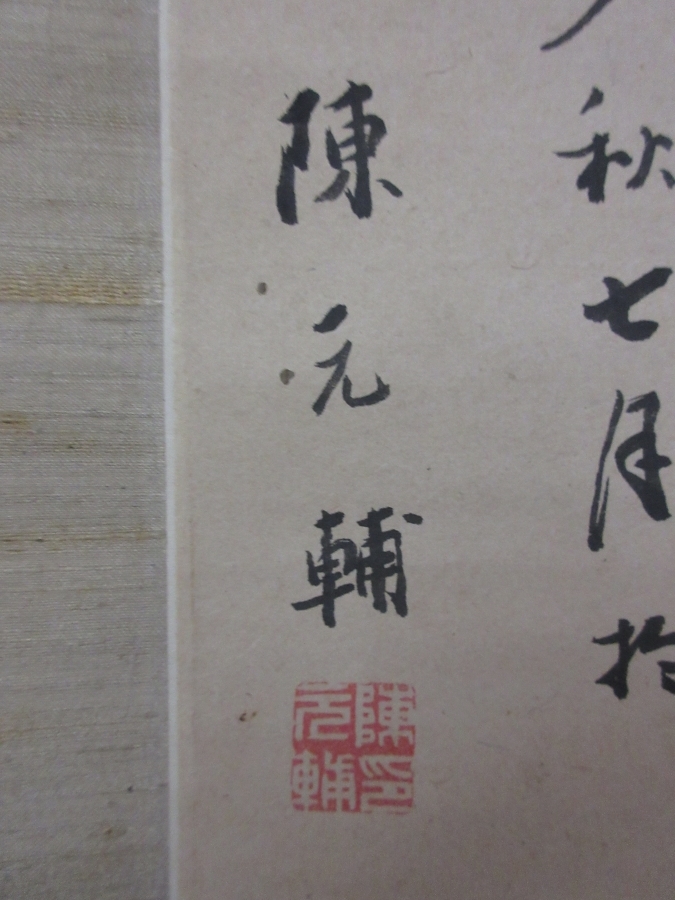 秋七月於
陳元輔
陳印元輔